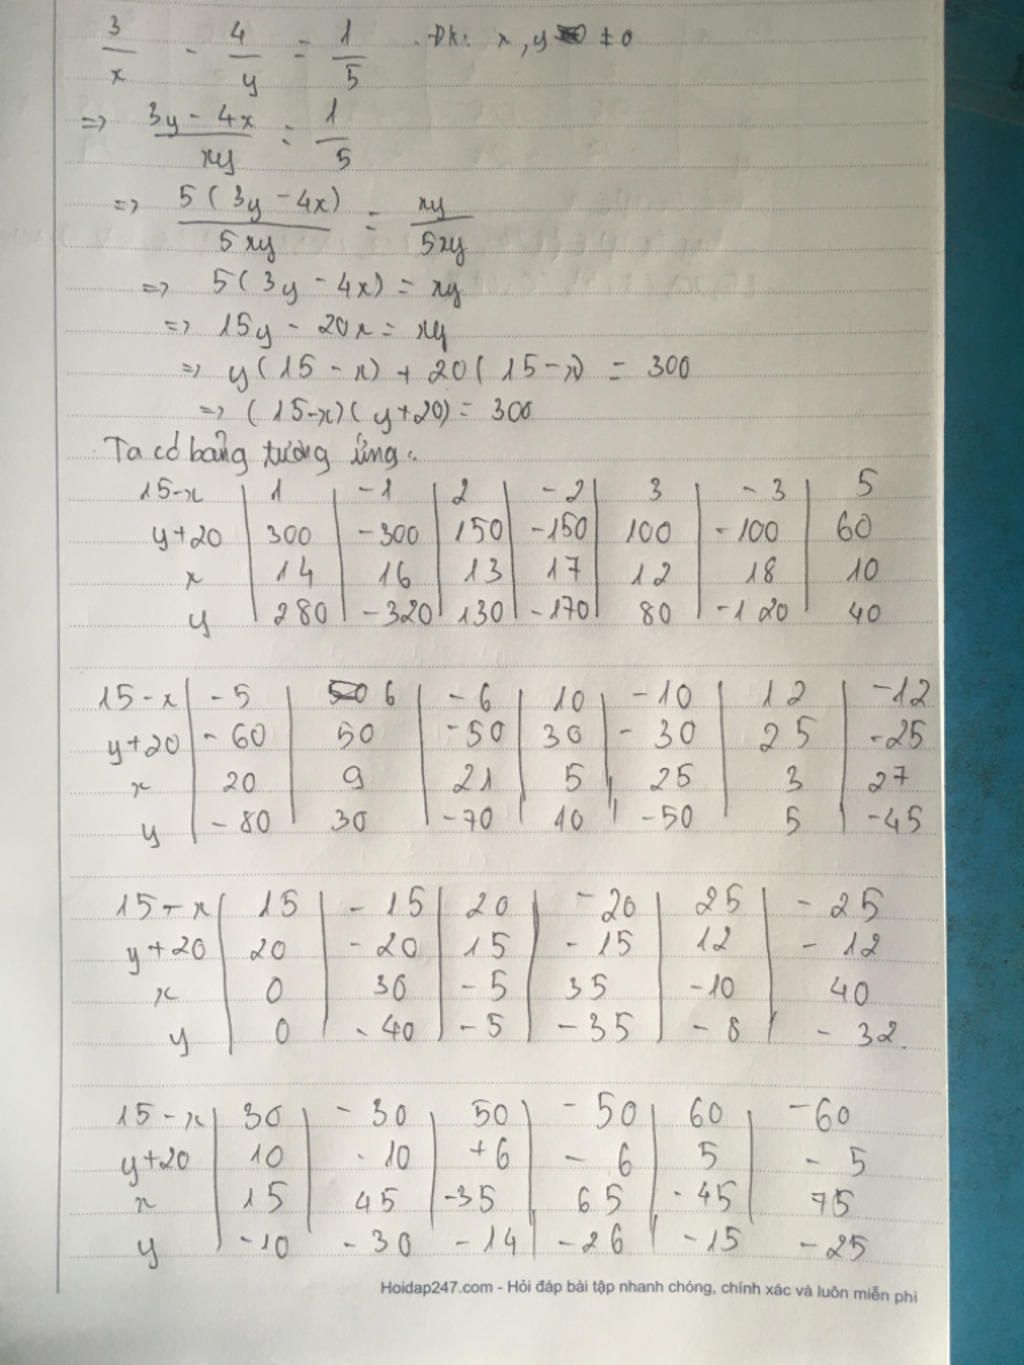 3/x - 4/y = 1/5 . ĐK: x, y ≠ 0
=> (3y - 4x)/xy = 1/5
=> 5(3y - 4x)/5xy = xy/5xy
=> 5(3y - 4x) = xy
=> 15y - 20x = xy
=> y(15 - x) + 20(15 - x) = 300
=> (15-x)(y+20) = 300
Ta có bảng tương ứng:
15-x | 1 | -1 | 2 | -2 | 3 | -3 | 5
y+20 | 300 | -300 | 150 | -150 | 100 | -100 | 60
x | 14 | 16 | 13 | 17 | 12 | 18 | 10
y | 280 | -320 | 130 | -170 | 80 | -120 | 40
15-x | -5 | 6 | -6 | 10 | -10 | 12 | -12
y+20 | -60 | 50 | -50 | 30 | -30 | 25 | -25
x | 20 | 9 | 21 | 5 | 25 | 3 | 27
y | -80 | 30 | -70 | 10 | -50 | 5 | -45
15-x | 15 | -15 | 20 | -20 | 25 | -25
y+20 | 20 | -20 | 15 | -15 | 12 | -12
x | 0 | 30 | -5 | 35 | -10 | 40
y | 0 | -40 | -5 | -35 | -8 | -32.
15-x | 30 | -30 | 50 | -50 | 60 | -60
y+20 | 10 | -10 | +6 | -6 | 5 | -5
x | 15 | 45 | -35 | 65 | -45 | 75
y | -10 | -30 | -14 | -26 | -15 | -25
Hoidap247.com - Hỏi đáp bài tập nhanh chóng, chính xác và luôn miễn phí